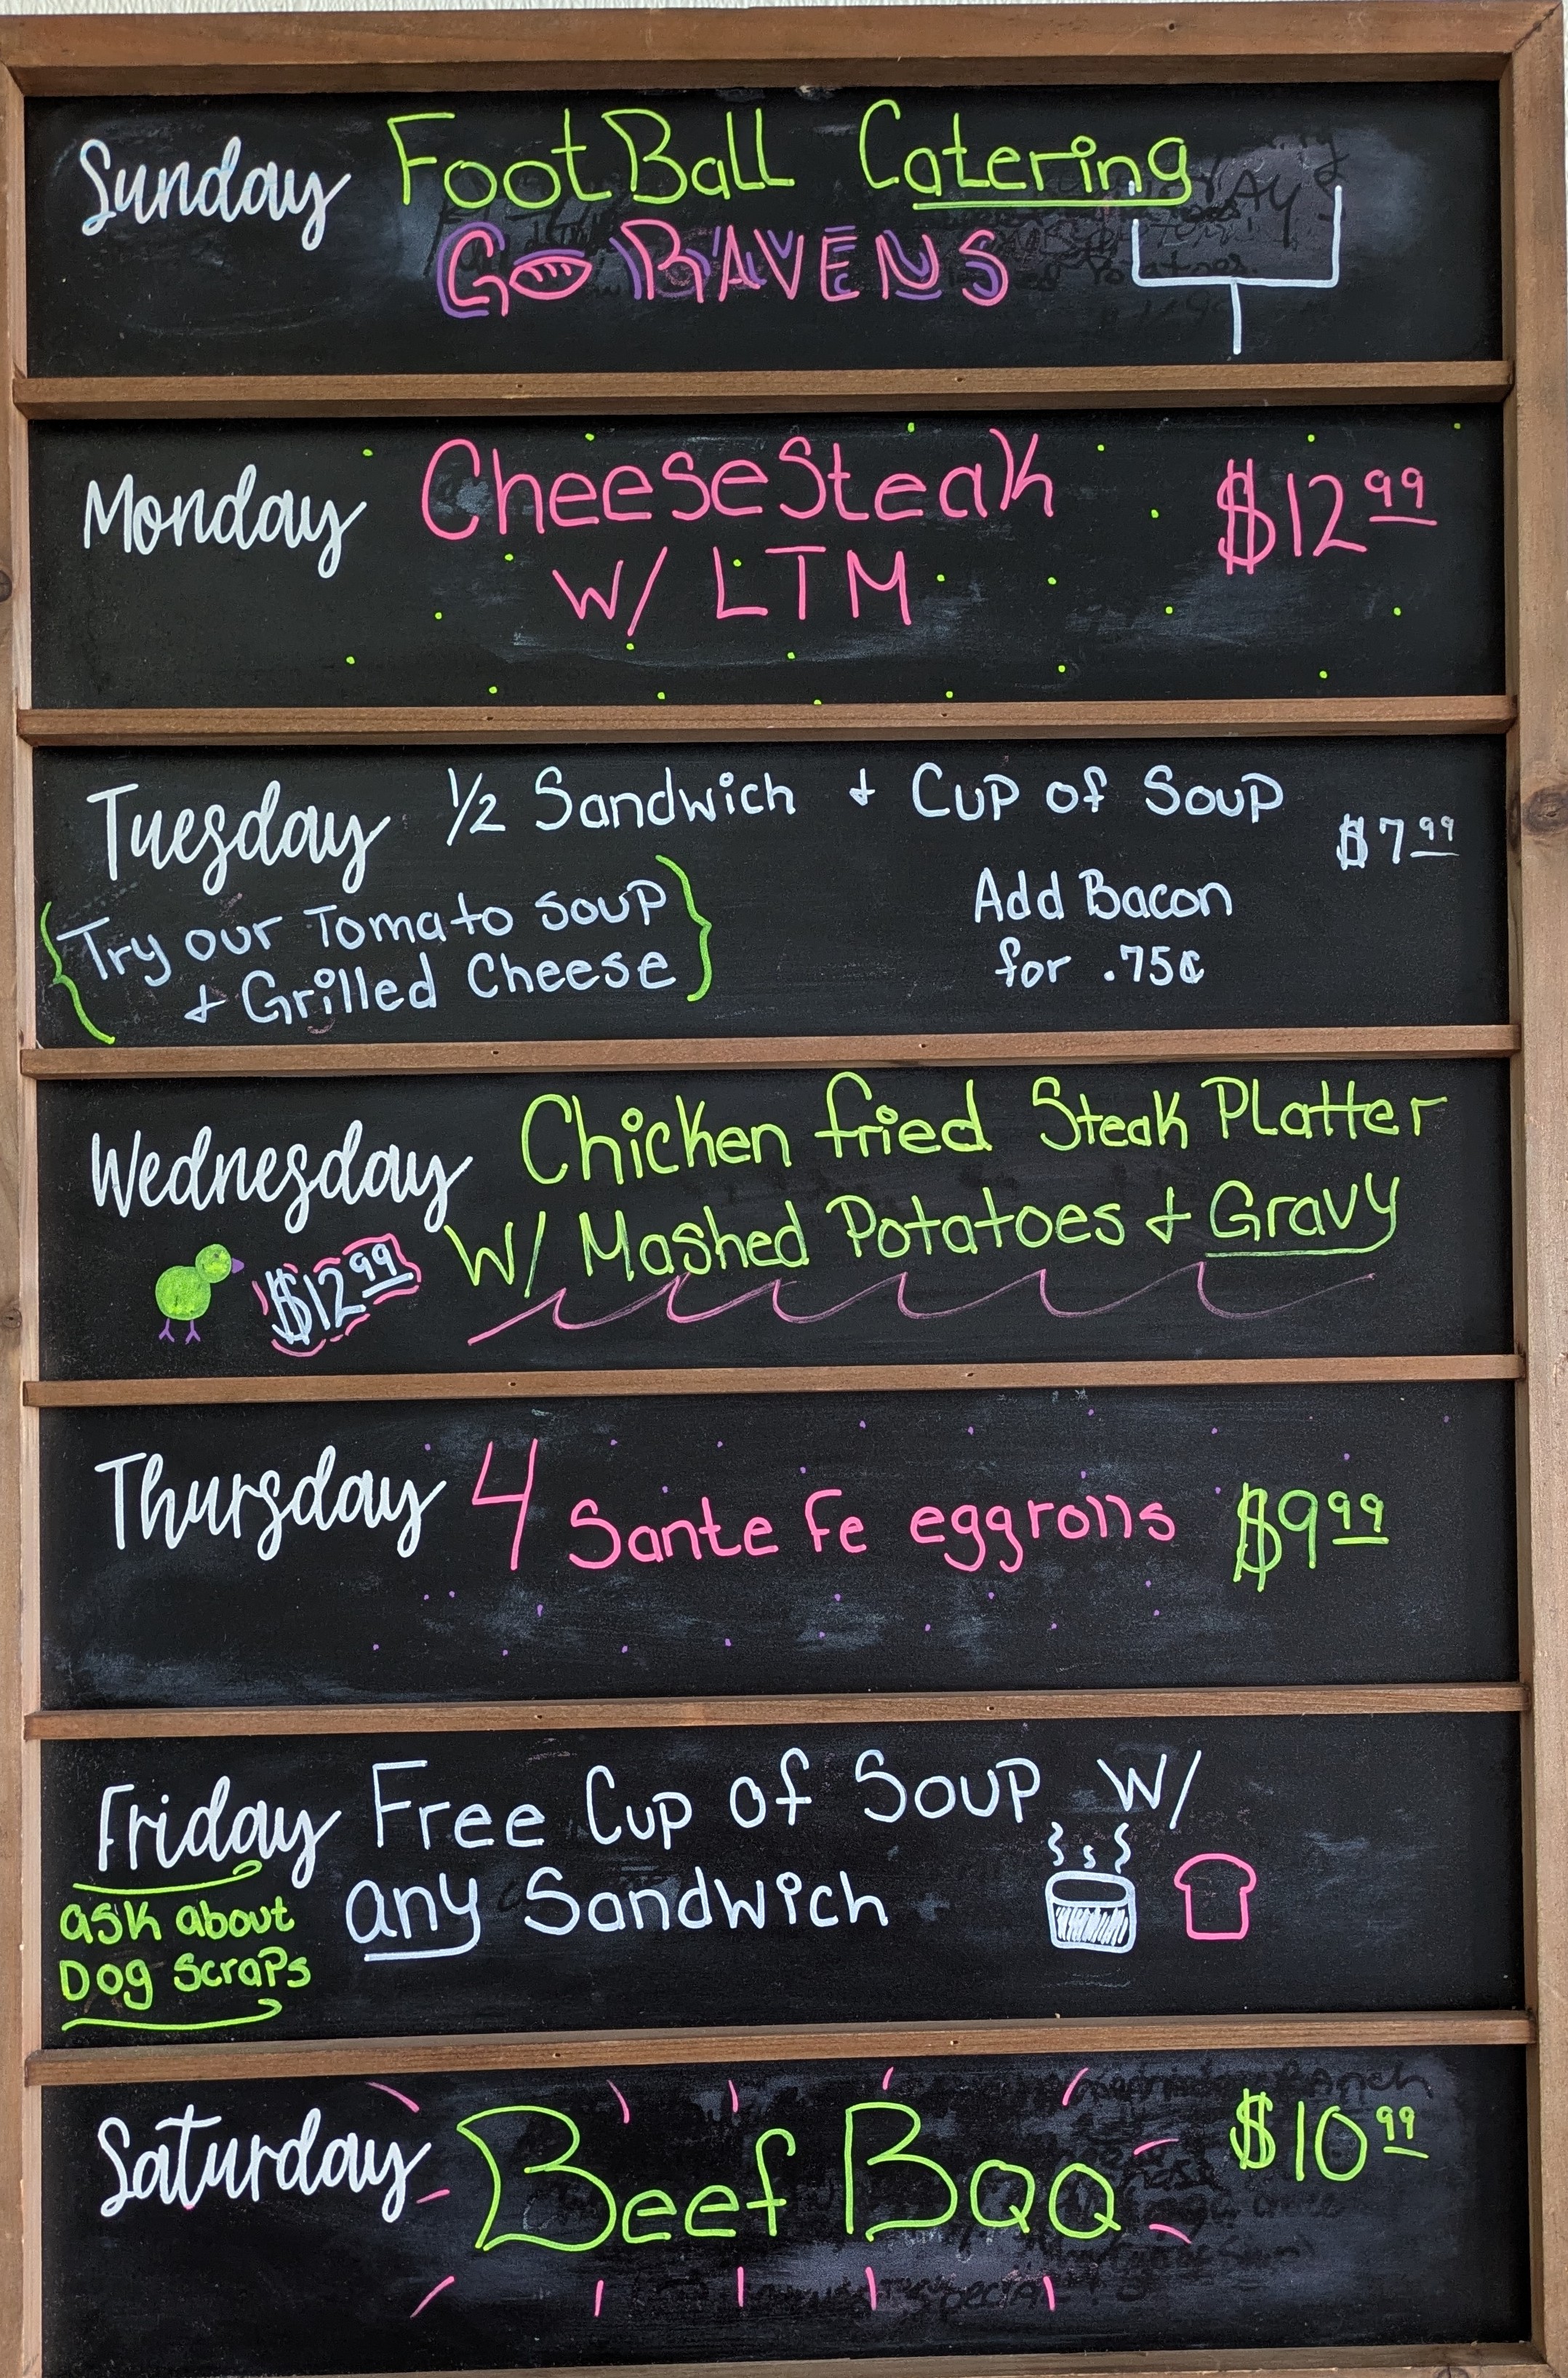 Sunday
FootBall Catering
GO RAVENS
Monday
CheeseSteak
W/ LTM
$12.99
Tuesday
1/2 Sandwich + Cup of Soup
$7.99
Add Bacon
for .75¢
{Try our Tomato Soup
+ Grilled Cheese}
Wednesday
Chicken fried Steak Platter
W/ Mashed Potatoes + Gravy
$12.99
Thursday
4 Sante Fe eggrolls
$9.99
Friday
Free Cup of Soup W/
any Sandwich
ask about
Dog Scraps
Saturday
Beef BQQ
$10.99